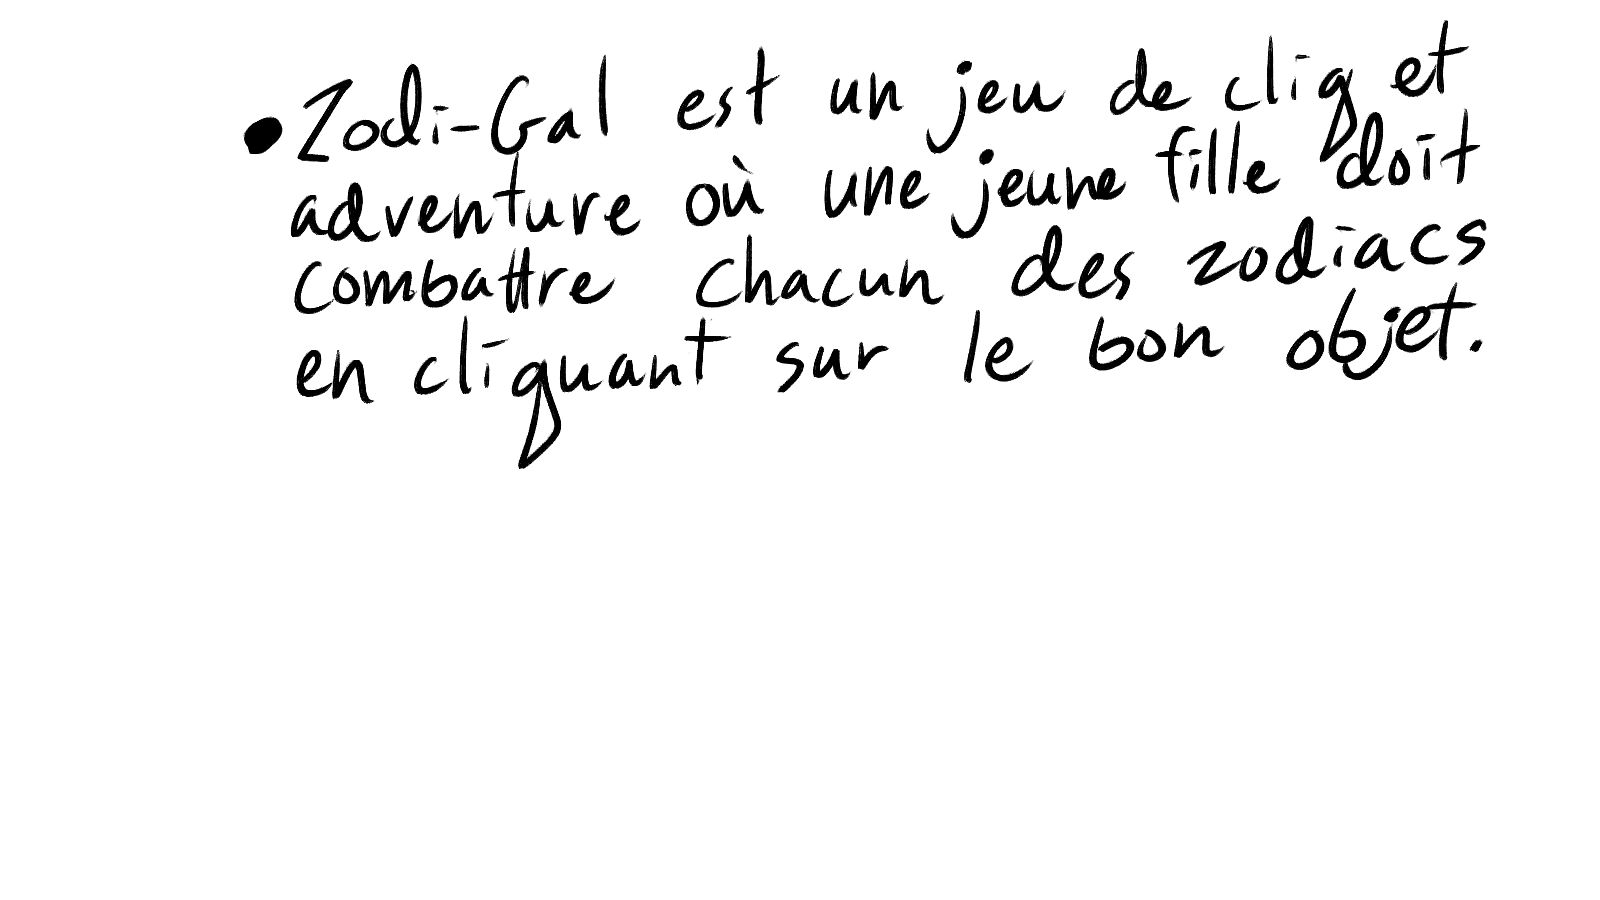 • Zodi-Gal est un jeu de cliq et
adventure où une jeune fille doit
combattre chacun des zodiacs
en cliquant sur le bon objet.